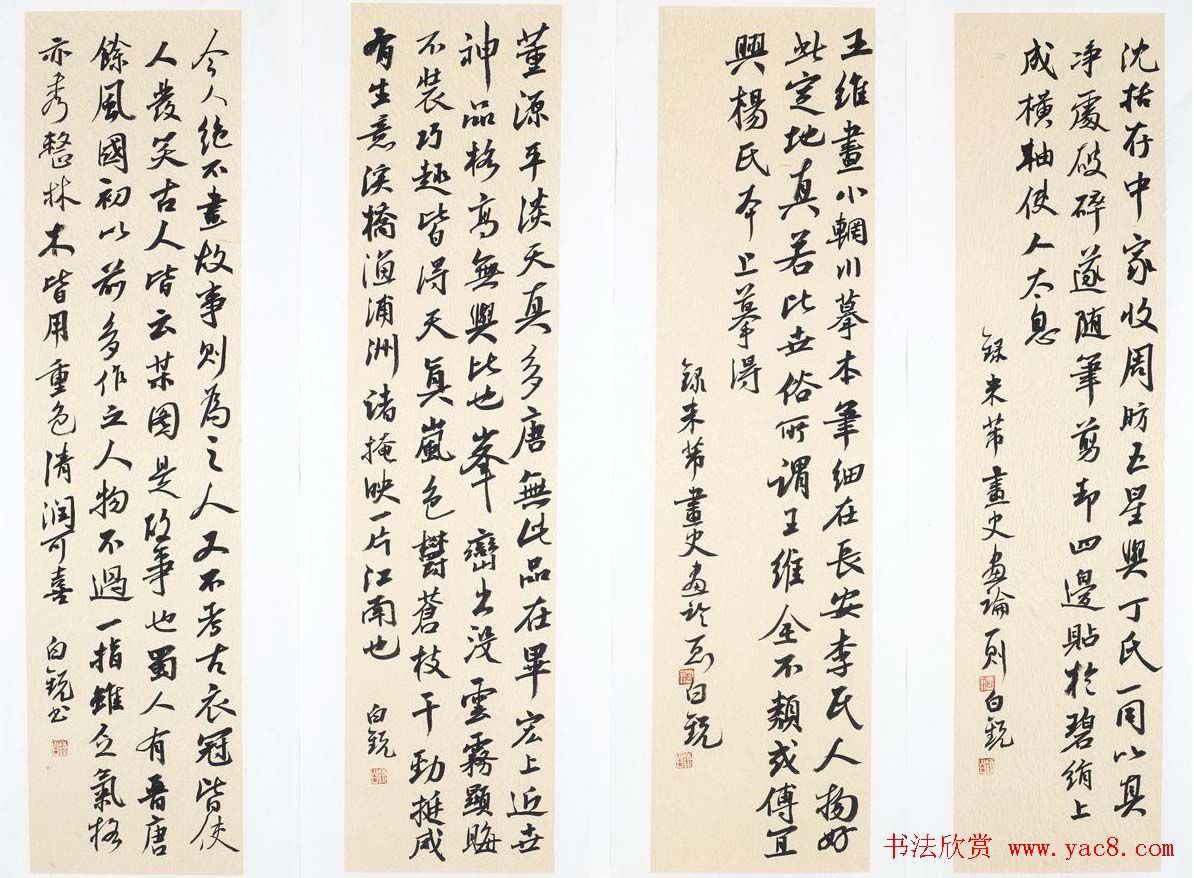 沈括存中家收周昉五星與丁氏一同以其
净處破碎遂随筆剪却四邊貼於碧絹上
成橫軸使人太息
録米芾畫史畫論一則 白銳
王維畫小輞川摹本筆細在長安李氏人物好
此定地真若比世俗所謂王維全不類或傅宜
興楊氏本上摹得
録米芾畫史畫論 白銳
董源平淡天真多唐無此品在畢宏上近世
神品格高無與比也峯巒出没雲霧顯晦
不裝巧趣皆得天真嵐色欝蒼枝干勁挺咸
有生意溪橋漁浦洲渚掩映一片江南也
白銳
今人絶不畫故事則為之人又不考古衣冠皆使
人發笑古人皆云某图是故事也蜀人有晋唐
餘風國初以前多作之人物不過一指雖乏氣格
亦秀整林木皆用重色清润可喜
白銳书
书法欣赏 www.yac8.com